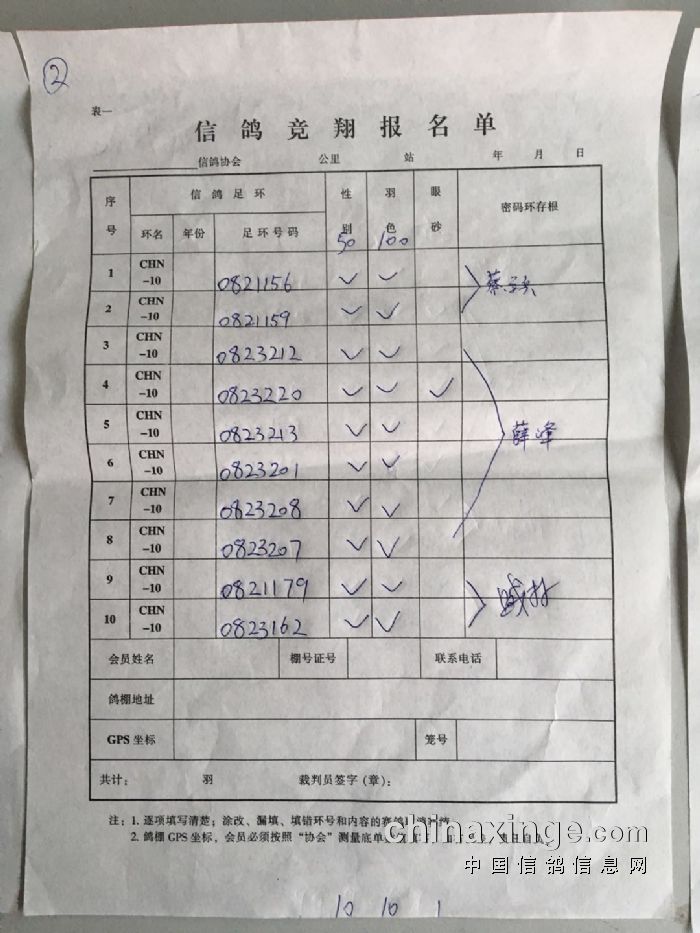 ②
表一
信鸽竞翔报名单
信鸽协会 公里 站 年 月 日
序号 信鸽足环 性别 羽色 眼砂 密码环存根
环名 年份 足环号码 50 100
1 CHN-10 0821156 ✓ ✓ 蔡
2 CHN-10 0821159 ✓ ✓
3 CHN-10 0823212 ✓ ✓
4 CHN-10 0823220 ✓ ✓ ✓
5 CHN-10 0823213 ✓ ✓ 薛峰
6 CHN-10 0823201 ✓ ✓
7 CHN-10 0823208 ✓ ✓
8 CHN-10 0823207 ✓ ✓
9 CHN-10 0821179 ✓ ✓
10 CHN-10 0823162 ✓ ✓
会员姓名 棚号证号 联系电话
鸽棚地址
GPS 坐标 笼号
共计: 羽 裁判员签字(章):
注: 1. 逐项填写清楚; 涂改、漏填、填错环号和内容的赛鸽
2. 鸽棚 GPS 坐标, 会员必须按照“协会”测量底单
chinaxinge.com
中国信鸽信息网
10 10 1